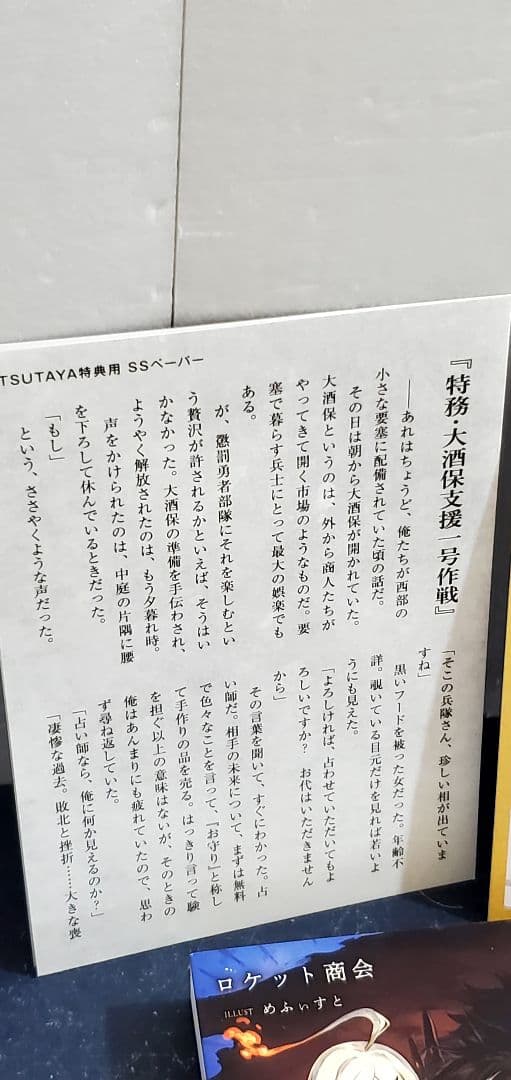 TSUTAYA特典用 SSペーパー
『特務・大酒保支援一号作戦』
――あれはちょうど、俺たちが西部の
小さな要塞に配備されていた頃の話だ。
その日は朝から大酒保が開かれていた。
大酒保というのは、外から商人たちが
やってきて開く市場のようなものだ。要
塞で暮らす兵士にとって最大の娯楽でも
ある。
が、懲罰勇者部隊にそれを楽しむとい
う贅沢が許されるかといえば、そうはい
かなかった。大酒保の準備を手伝わされ、
ようやく解放されたのは、もう夕暮れ時。
声をかけられたのは、中庭の片隅に腰
を下ろして休んでいるときだった。
「もし」
という、ささやくような声だった。
「そこの兵隊さん、珍しい相が出ていま
すね」
黒いフードを被った女だった。年齢不
詳。覗いている目元だけを見れば若いよ
うにも見えた。
「よろしければ、占わせていただいてもよ
ろしいですか? お代はいただきません
から」
その言葉を聞いて、すぐにわかった。占
い師だ。相手の未来について、まずは無料
で色々なことを言って、「お守り」と称し
て手作りの品を売る。はっきり言って験
を担ぐ以上の意味はないが、そのときの
俺はあんまりにも疲れていたので、思わ
ず尋ね返していた。
「占い師なら、俺に何か見えるのか?」
「凄惨な過去。敗北と挫折……大きな喪
ロケット商会
ILLUST めふぃすと